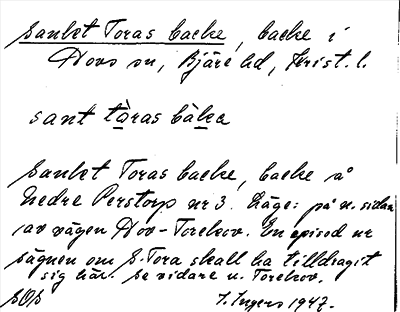 Sankt Toras backe, backe i
Hovs sn, Bjäre hd, Krist. l.
sant tàras bàka
Sankt Toras backe, backe å
Nedre Perstorp nr 3. Läge: på n. sidan
av vägen Hov-Torekov. En episod ur
sägnen om S. Tora skall ha tilldragit
sig här. Se vidare u. Torekov.
SOS I. Ingers 1947.